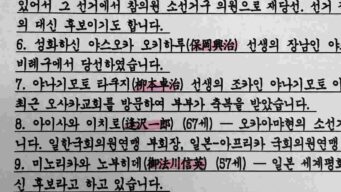 있어서 그 선거에서 참의원 소선거구 의원으로 재당선. 선거 
의 대신 후보이기도 합니다.
6. 성화하신 야스오카 오키하루(保岡興治) 선생의 장남인 야
비례구에서 당선하였습니다.
7. 야나기모토 타쿠지(柳本卓治) 선생의 조카인 야나기모토 아
최근 오사카교회를 방문하여 부부가 축복을 받았습니다.
8. 아이사와 이치로(逢沢一郎) (67세) - 오카야마현의 소선거
니다. 일한국회의원연맹 부회장, 일본-아프리카 국회의원연맹
9. 미노리카와 노부히데(御法川信英) (57세) - 일본 세계평화
신 후보라고 하고 있습니다.